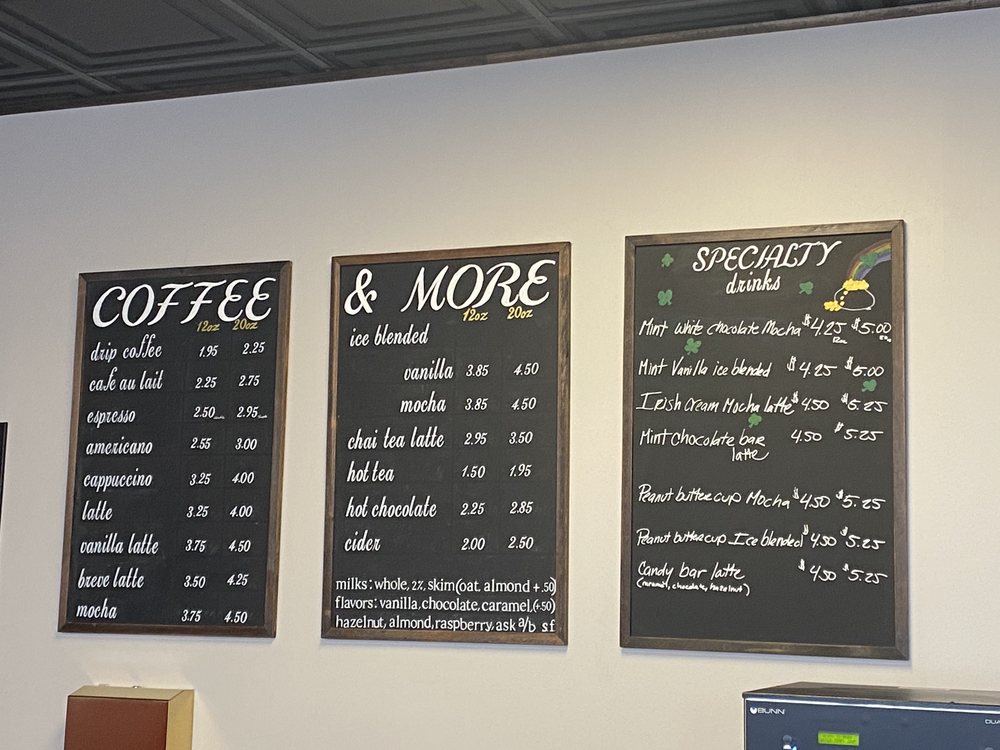 COFFEE
12oz 20oz
drip coffee 1.95 2.25
cafe au lait 2.25 2.75
espresso 2.50 2.95
americano 2.55 3.00
cappuccino 3.25 4.00
latte 3.25 4.00
vanilla latte 3.75 4.50
breve latte 3.50 4.25
mocha 3.75 4.50
& MORE
12oz 20oz
ice blended
vanilla 3.85 4.50
mocha 3.85 4.50
chai tea latte 2.95 3.50
hot tea 1.50 1.95
hot chocolate 2.25 2.85
cider 2.00 2.50
milks: whole, 2%, skim (oat, almond +.50)
flavors: vanilla, chocolate, caramel, (+.50)
hazelnut, almond, raspberry, ask a/b sf
SPECIALTY
drinks
Mint white chocolate Mocha $4.25 $5.00
12oz
Mint Vanilla ice blended $4.25 $5.00
Irish Cream Mocha latte $4.50 $5.25
Mint chocolate bar 4.50 $5.25
latte
Peanut butter cup Mocha $4.50 $5.25
Peanut butter cup Ice blended $4.50 $5.25
Candy bar latte $4.50 $5.25
(caramel, chocolate, hazelnut)
BUNN
DUA